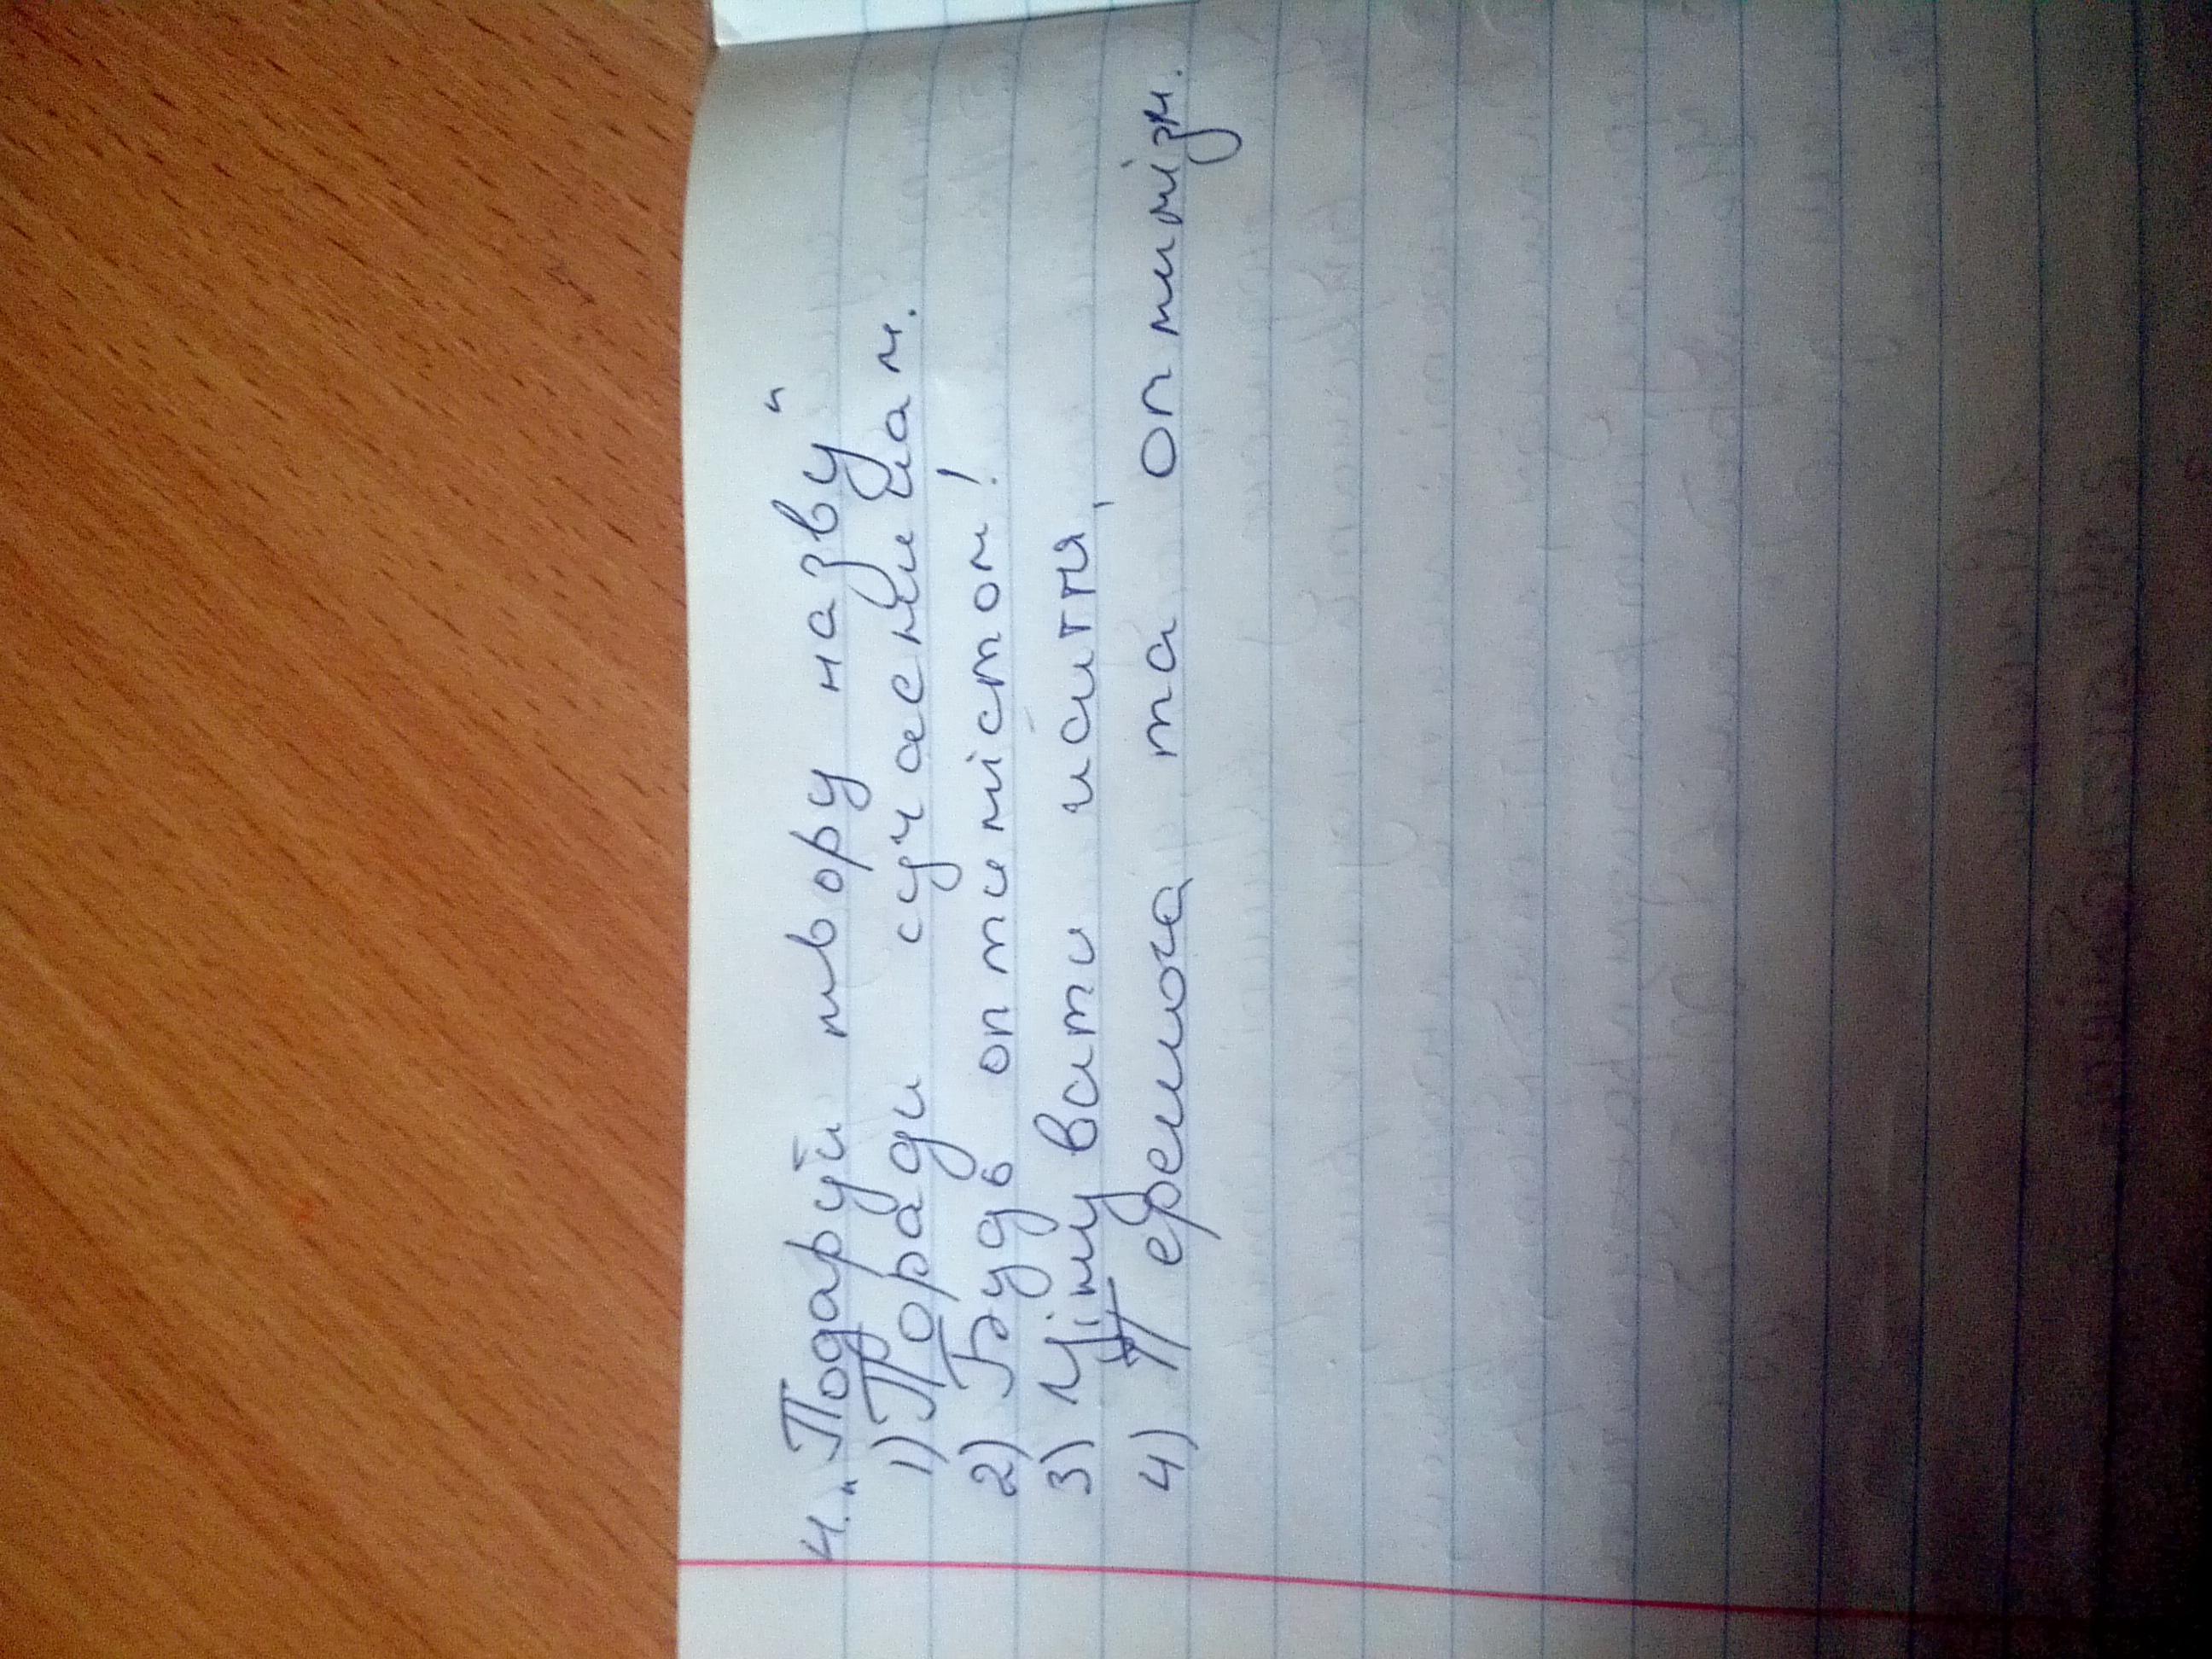 4. „Подаруй твору назву"
1) Поради сучасницам.
2) Будь оптимістом!
3) Цінувати життя,
4) Перемога та оптимізм.